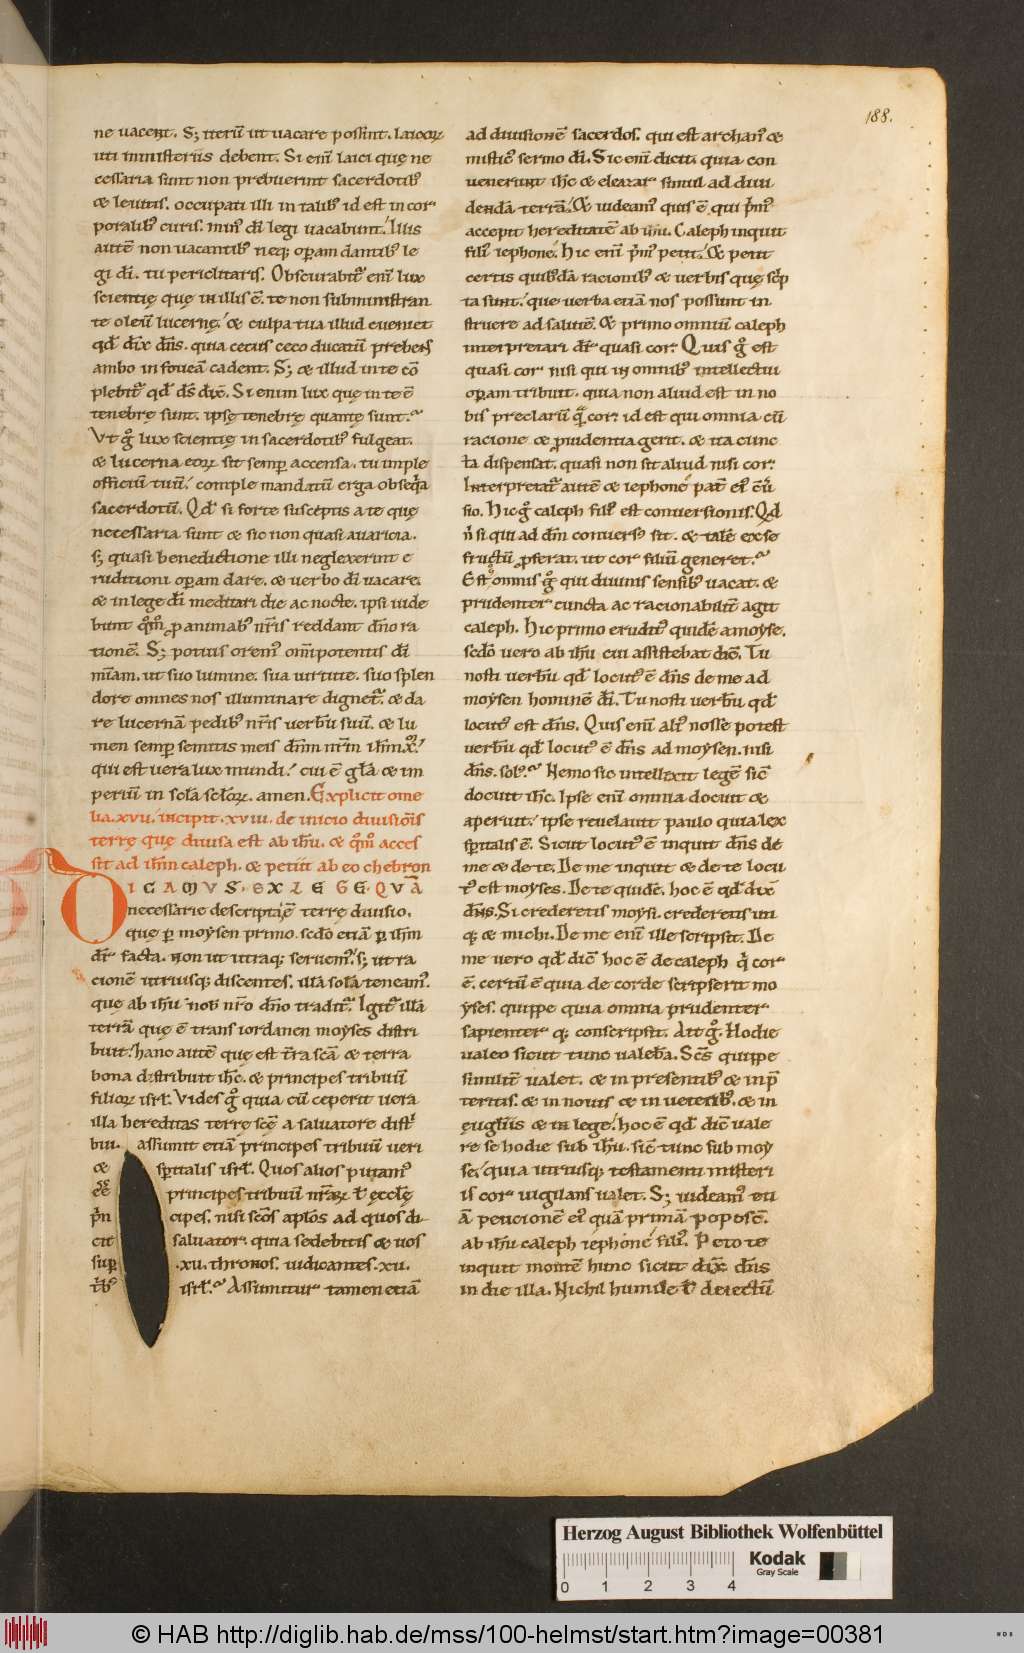 188.
ne uacent. S; iterū ut uacare possint. laicoꝝ
uti ministeriis debent. Si enī laici quę ne
cessaria sunt non prebuerint sacerdotib;
& leuitis. occupati illi in talib; id est in cor
poralib; curis. min᷒ dī legi uacabunt. Illis
autē non uacantib; neq; opam dantib; le
gi dī. tu periclitaris. Obscurabit᷒ enī lux
scientię quę in illis ē. te non subministran
te oleū lucernę. & culpa tua illud eueniet
qd̄ dix̄ dn̄s. quia cecus ceco ducatū prebens
ambo in foueā cadent. S; & illud in te cō
plebit᷒ qd̄ dn̄s dix̄. Si enim lux quę in te ē
tenebrę sunt. ipsę tenebrę quantę sunt.
Vt g̊ lux scientię in sacerdotib; fulgeat.
& lucerna eoꝝ sit semp accensa. tu imple
officiū tuū. comple mandatū erga obseq̄a
sacerdotū. Qd̄ si forte susceptis a te quę
necessaria sunt & sic non quasi auaricia.
s; quasi benedictione illi neglexerint e
ruditioni opam dare. & uerbo dī uacare.
& in lege dī meditari die ac nocte. ipsi uide
bunt qm̊ p animab; nr̄is reddant dn̄o ra
tionē. S; potius orem᷒ omīpotentis dī
mīam. ut suo lumine. sua uirtute. suo splen
dore omnes nos illuminare dignet᷒. & da
re lucernā pedib; nr̄is uerbū suū. & lu
men semp semitis meis dn̄m nr̄m ih̄m xp̄m.
qui est uera lux mundi. cui ē gła & im
periū in scła scłoꝝ. amen. Explicit ome
lia .xvii. incipit .xviii. de inicio diuisiōis
terrę quę diuisa est ab ih̄u. & qm̊ acces
sit ad ih̄m caleph. & petiit ab eo chebron
DICAMVS. EXLEGE. QVĀ
necessarie descripta ē terrę diuisio.
quę p moysen primo. scd̄o etiā p ih̄m
dr̄ facta. non ut utraq; seruem᷒. s; ut ra
cionē utriusq; discentes. illā solā teneam᷒.
que ab ih̄u nob̄ nr̄o dn̄o tradit᷒. Igit᷒ illā
terrā quę ē trans iordanen moyses distri
buit. hanc autē quę est t̄ra scā & terra
bona distribuit ih̄c. & principes tribuū
filioꝝ isrł. Vides g̊ quia cū ceperit uera
illa hereditas terrę scę a saluatore distri
bui. assumit etiā principes tribuū ueri
& spitalis isrł. Quos alios putam᷒
ēē principes tribuū nr̄aꝝ ł ęccłę
p̄n cipes. nisi scōs apłos ad quos di
cit saluator. quia sedebitis & uos
sup .xii. thronos. iudicantes .xii.
tb᷒ isrł. Assumitur tamen etiā
ad diuisionē sacerdos. qui est archan᷒ &
mistic᷒ sermo dī. Sic enī dicit. quia con
uenerunt ih̄c & eleazar simul ad diui
dendā terrā. & uideam᷒ quis ē qui p̄m᷒
accepit hereditatē ab ih̄u. Caleph inquit
fili᷒ iephone. Hic enī p̄m᷒ petit. & petit
certis quib;dā racionib; & uerbis quę sc̄p
ta sunt. que uerba etiā nos possunt in
struere ad salutē. & primo omniū caleph
interpretari dr̄ quasi cor. Quis g̊ est
quasi cor nisi qui in omnib; intellectui
opam tribuit. quia non aliud est in no
bis preclarū q̄ cor. id est qui omnia cū
racione & puidentia gerit. & ita cunc
ta dispensat. quasi non sit aliud nisi cor.
Interpretat᷒ autē & iephone pat̄ ei᷒ cōū
sio. Hic g̊ caleph fili᷒ est conuersionis. Qd̄
n̄ si qui ad dm̄ conuers᷒ sit. & talē ex se
fructū pferat. ut cor filiū generet.
Est omnis g̊ qui diuinis sensib; uacat. &
prudenter cuncta ac racionabilit̄ agit
caleph. Hic primo erudit᷒ quidē a moyse.
scd̄o uero ab ih̄u cui assistebat dic̄. Tu
nosti uerbū qd̄ locut᷒ ē dn̄s de me ad
moysen hominē dī. Tu nosti uerbū qd̄
locut᷒ est dn̄s. Quis enī ali᷒ nosse potest
uerbū qd̄ locut᷒ ē dn̄s ad moysen. nisi
dn̄s. sol᷒. Nemo sic intellexit legē sic̄
docuit ih̄c. Ipse enī omnia docuit &
aperuit. ipse reuelauit paulo quia lex
spitalis ē. Sicut locut᷒ ē inquit dn̄s de
me & de te. De me inquit & de te locu
t᷒ est moyses. De te quidē. hoc ē qd̄ dix̄
dn̄s. Si crederetis moysi. crederetis uti
q; & michi. De me enī ille scripsit. De
me uero qd̄ dic̄ hoc ē de caleph q̄ cor
ē. certū ē quia de corde scripserit mo
yses. quippe quia omnia prudenter
sapienter q; conscripsit. Ait g̊. Hodie
ualeo sicut tunc ualebā. Scs quippe
similit̄ ualet. & in presentib; & in p̄
teritis. & in nouis & in ueterib;. & in
euglīis & in lege. hoc ē qd̄ dic̄ uale
re se hodie sub ih̄u. sic̄ tunc sub moy
se. quia utriusq; testamenti misteri
is cor uigilans ualet. S; uideam᷒ eti
ā peticionē ei᷒ quā primā poposc̄.
ab ih̄u caleph iephone fili᷒. Peto te
inquit montē hunc sicut dix̄ dn̄s
in die illa. Nichil humile ł deiectū
Herzog August Bibliothek Wolfenbüttel
Kodak
Gray Scale
0 1 2 3 4
© HAB http://diglib.hab.de/mss/100-helmst/start.htm?image=00381